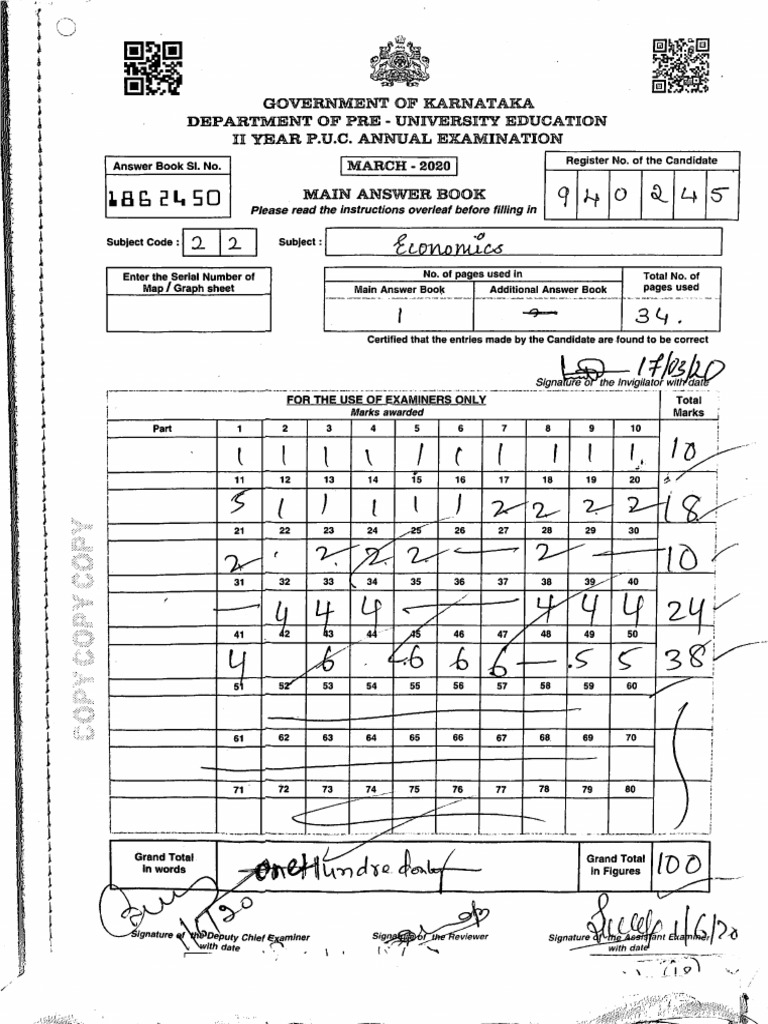 GOVERNMENT OF KARNATAKA
DEPARTMENT OF PRE - UNIVERSITY EDUCATION
II YEAR P.U.C. ANNUAL EXAMINATION
Answer Book Sl. No.
MARCH - 2020
Register No. of the Candidate
1862450
MAIN ANSWER BOOK
940245
Please read the instructions overleaf before filling in
Subject Code : 22 Subject : Economics
Enter the Serial Number of Map / Graph sheet
No. of pages used in
Main Answer Book Additional Answer Book
Total No. of pages used
1 - 34.
Certified that the entries made by the Candidate are found to be correct
17/03/20
Signature of the Invigilator with date
FOR THE USE OF EXAMINERS ONLY
Marks awarded
Total Marks
Part 1 2 3 4 5 6 7 8 9 10
1 1 1 1 1 1 1 1 1 1. 10
11 12 13 14 15 16 17 18 19 20
5 1 1 1 1 1 2 2 2 2 18
21 22 23 24 25 26 27 28 29 30
2 . 2 2 2 - 2 - 10
31 32 33 34 35 36 37 38 39 40
- 4 4 4 - 4 4 4 24
41 42 43 44 45 46 47 48 49 50
4 6 . 6 6 6 - .5 5 38
51 52 53 54 55 56 57 58 59 60
61 62 63 64 65 66 67 68 69 70
71 72 73 74 75 76 77 78 79 80
Grand Total in words one Hundred only
Grand Total in Figures 100
1/6/20
Signature of the Deputy Chief Examiner with date
Signature of the Reviewer
Signature of the Assistant Examiner with date
COPY COPY COPY